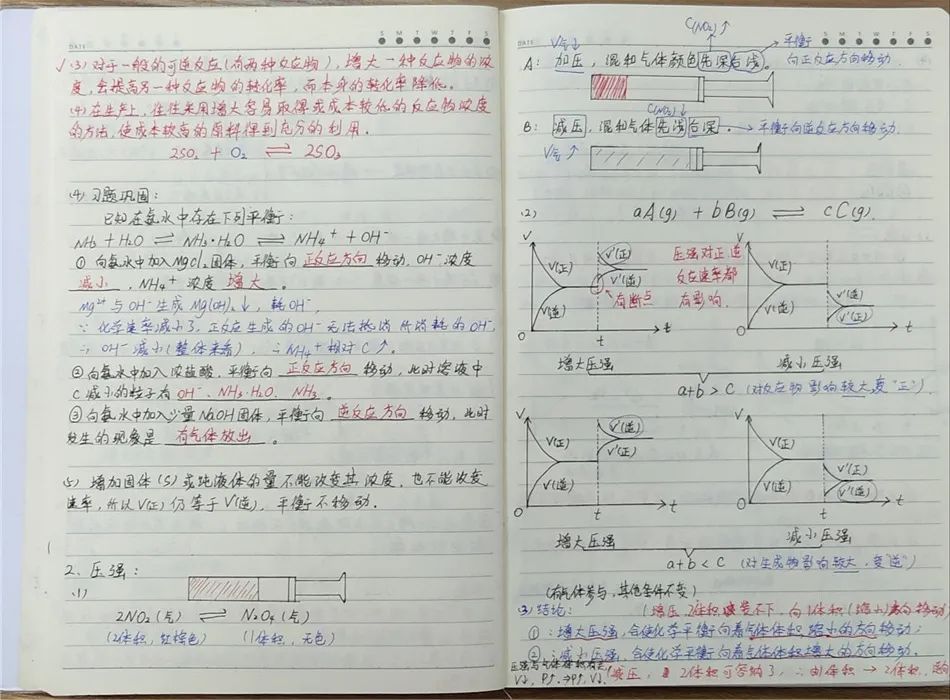 DATE S M T W T F S
√(3) 对于一般的可逆反应(有两种反应物),增大一种反应物的浓
度,会提高另一种反应物的转化率,而本身的转化率降低。
(4) 在生产上,往往采用增大容易取得或成本较低的反应物浓度
的方法,使成本较高的原料得到充分的利用。
2SO₂ + O₂ ⇌ 2SO₃
(4) 习题巩固:
已知在氨水中存在下列平衡:
NH₃ + H₂O ⇌ NH₃·H₂O ⇌ NH₄⁺ + OH⁻
① 向氨水中加入MgCl₂固体,平衡向 正反应方向 移动,OH⁻浓度
减小 ,NH₄⁺ 浓度 增大 。
Mg²⁺与OH⁻生成Mg(OH)₂↓,耗OH⁻
∵ 化学速率减小了,正反应生成的OH⁻无法抵消所消耗的OH⁻,
∴ OH⁻减小(整体来看),∴NH₄⁺相对C↑。
②向氨水中加入浓盐酸,平衡向 正反应方向 移动,此时溶液中
C减小的粒子有 OH⁻、NH₃·H₂O、NH₃。
③向氨水中加入少量NaOH固体,平衡向 逆反应方向 移动,此时
发生的现象是 有气体放出 。
(5) 增加固体(S)或纯液体的量不能改变其浓度,也不能改变
速率,所以V(正)仍等于V'(逆),平衡不移动。
2、压强:
(1)
2NO₂(气) ⇌ N₂O₄(气)
(2体积,红棕色) (1体积,无色)
DATE S M T W T F S
C(NO₂)↑
V气↓ 平衡
A: 加压,混和气体颜色先深后浅。向正反应方向移动.
C(NO₂)↓
B: 减压,混和气体先浅后深。→平衡向逆反应方向移动.
V气↑
(2) aA(g) + bB(g) ⇌ cC(g).
V V(正) V(逆) V'(正) V'(逆) 有断点 O t t
压强对正逆
反应速率都
有影响.
V V(正) V(逆) V'(逆) V'(正) O t t
增大压强 减小压强
a+b > C (对反应物影响较大,变“正”)
V V(正) V(逆) V'(逆) V'(正) O t t
V V(正) V(逆) V'(正) V'(逆) O t t
增大压强 减小压强
a+b < C (对生成物影响较大,变“逆”)
(有气体参与,其他条件不变)
(3)结论: (增压,2体积 不下,向1体积(缩小)移动
①:增大压强,会使化学平衡向着气体体积缩小的方向移动;
②:减小压强,会使化学平衡向着气体体积增大的方向移动.
压强与气体体积有关
V↓,P↑.⇒P↑,V↓. (减压, 2体积可容纳了,∴由体积→2体积,